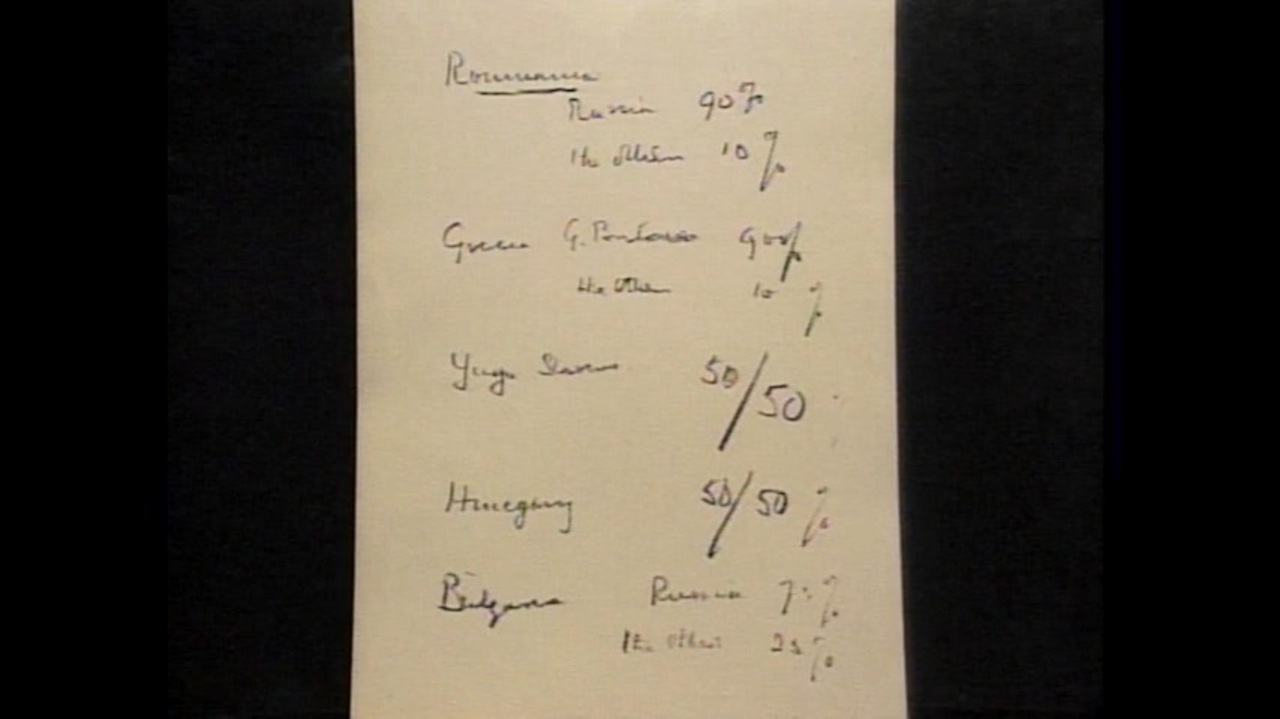 Roumania
Russia 90%
The others 10%
Greece G. Britain 90%
the others 10 %
Yugo Slavia 50/50
Hungary 50/50 %
Bulgaria Russia 75%
The others 25%